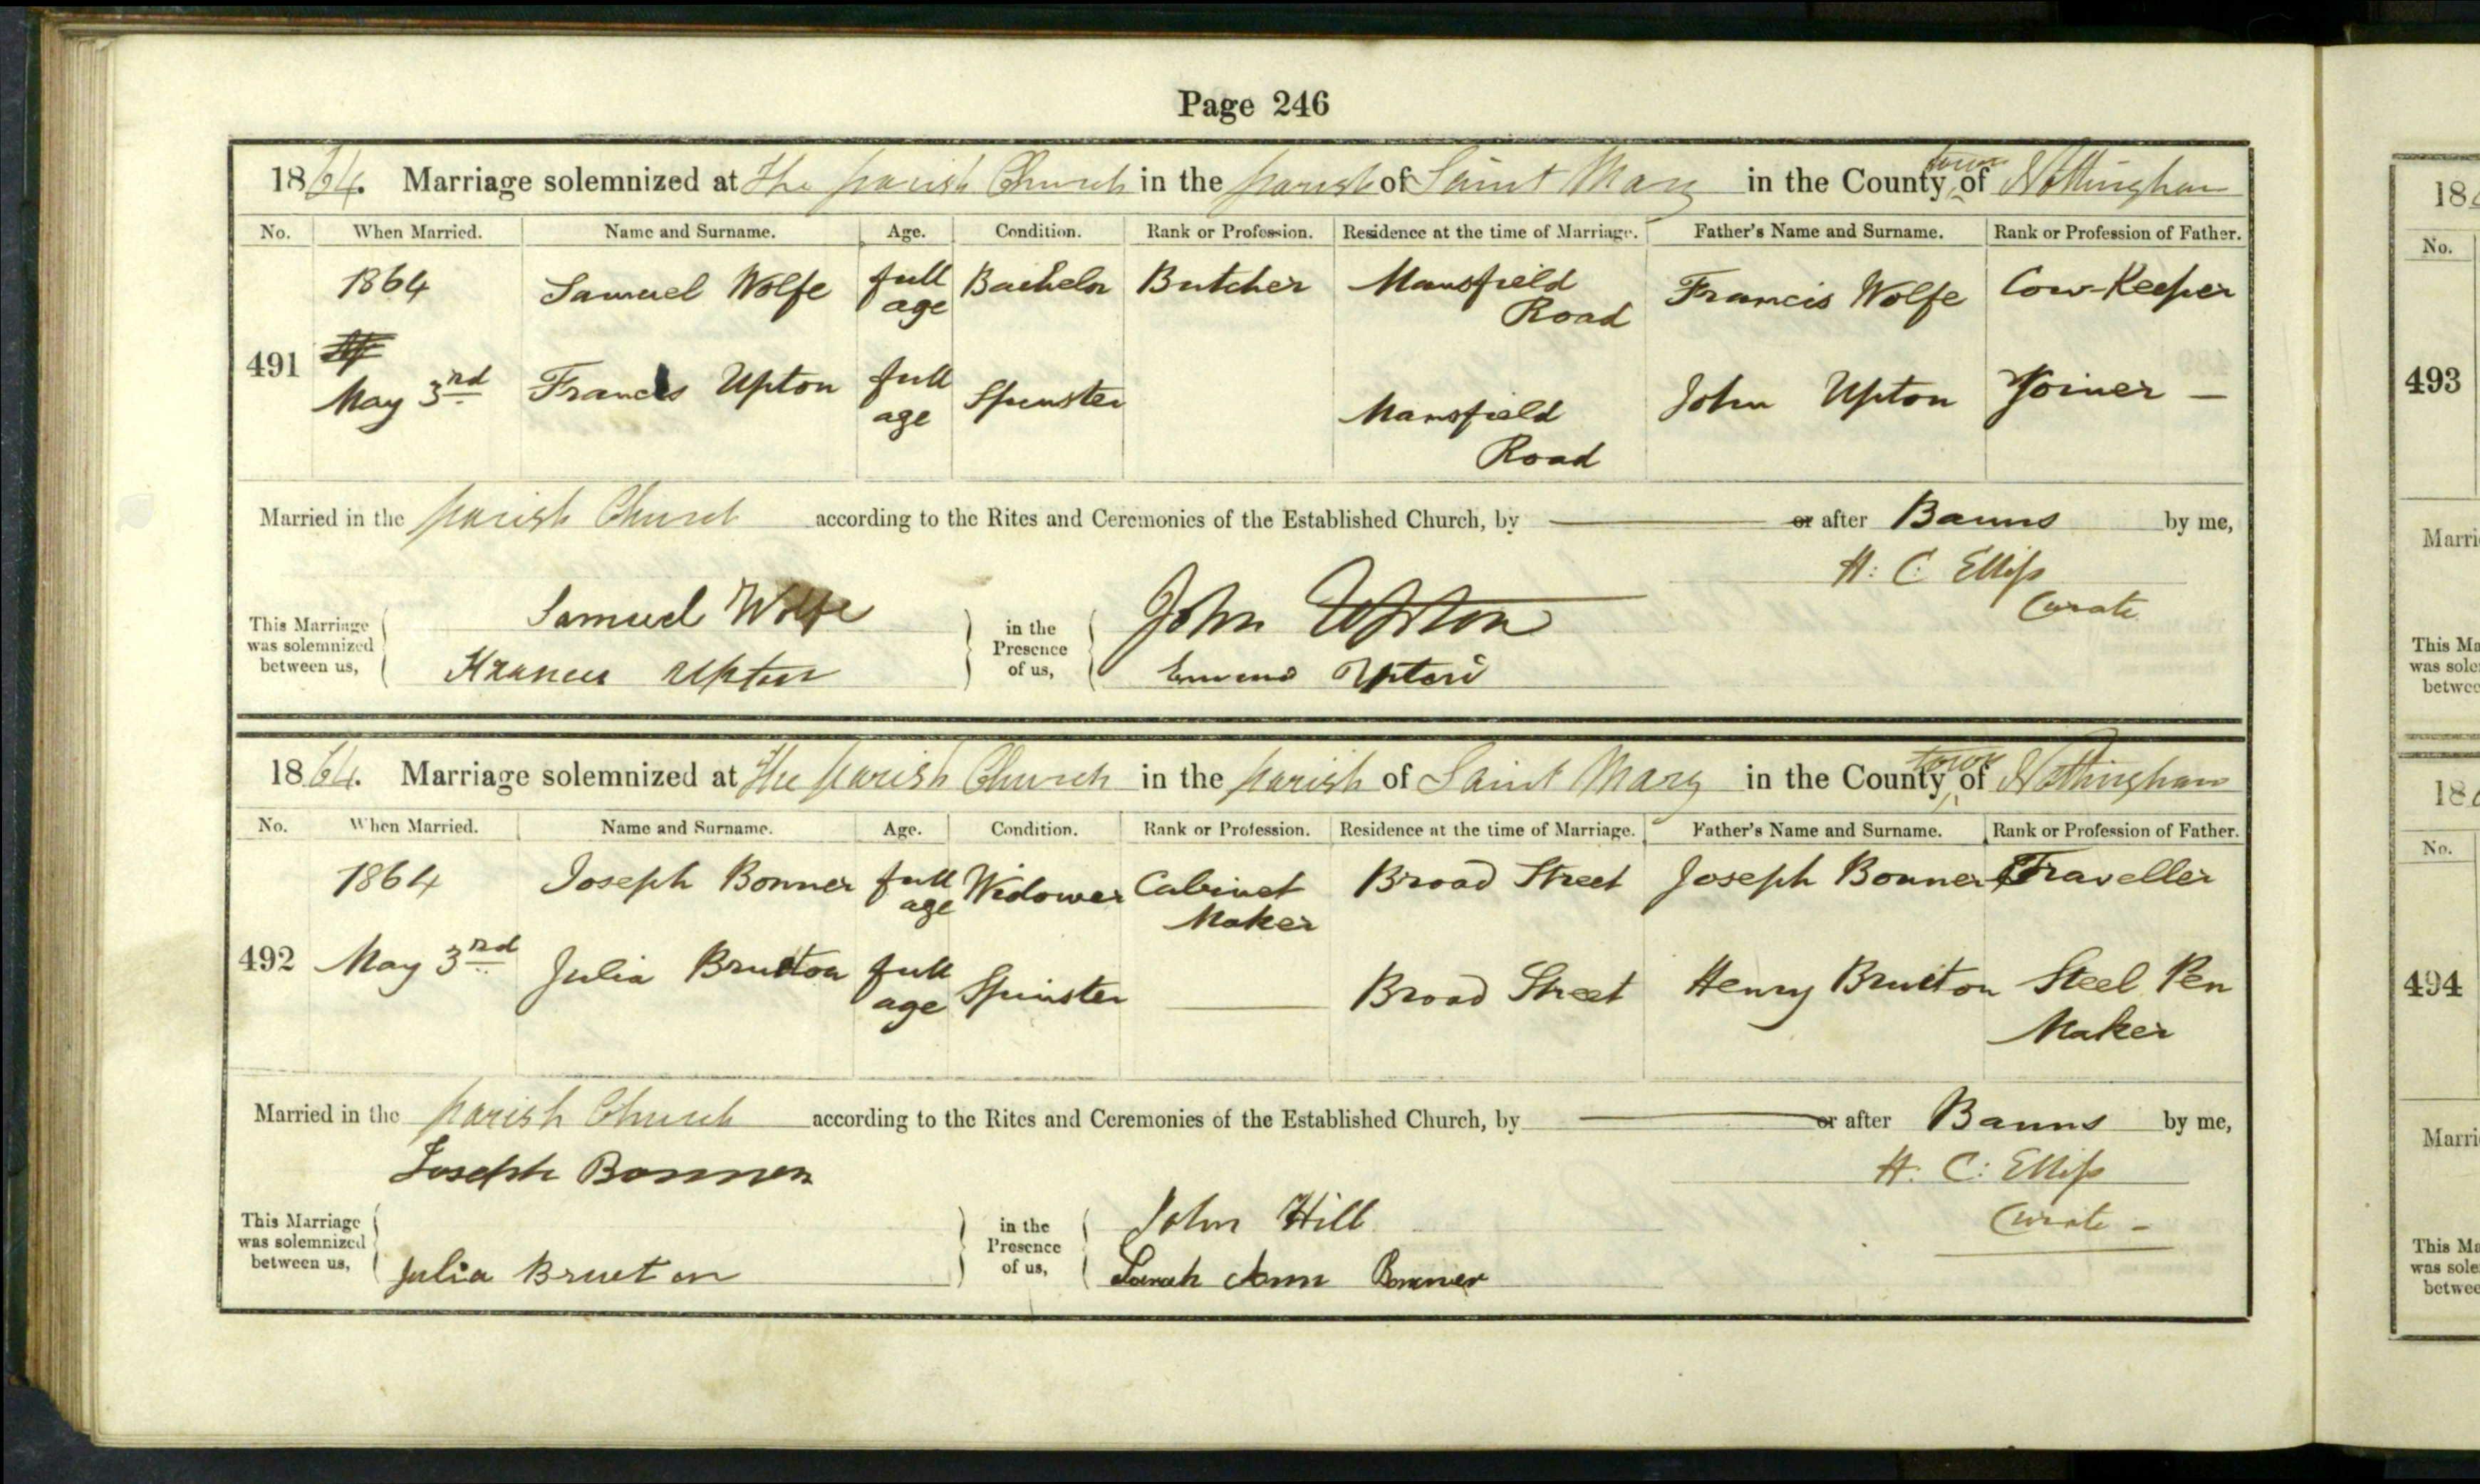 Page 246
1864. Marriage solemnized at The parish Church in the parish of Saint Mary in the County town of Nottingham
No. When Married. Name and Surname. Age. Condition. Rank or Profession. Residence at the time of Marriage. Father's Name and Surname. Rank or Profession of Father.
1864 Samuel Wolfe full age Bachelor Butcher Mansfield Road Francis Wolfe Cow-Keeper
491 May 3rd Frances Upton full age Spinster Mansfield Road John Upton Joiner —
Married in the parish Church according to the Rites and Ceremonies of the Established Church, by ——— or after Banns by me,
H: C: Elliss
Curate
This Marriage was solemnized between us, Samuel Wolfe Frances Upton in the Presence of us, John Upton Upton
1864. Marriage solemnized at The parish Church in the parish of Saint Mary in the County town of Nottingham
No. When Married. Name and Surname. Age. Condition. Rank or Profession. Residence at the time of Marriage. Father's Name and Surname. Rank or Profession of Father.
1864 Joseph Bonner full age Widower Cabinet Maker Broad Street Joseph Bonner Traveller
492 May 3rd Julia Brueton full age Spinster ——— Broad Street Henry Brueton Steel Pen Maker
Married in the parish Church according to the Rites and Ceremonies of the Established Church, by ——— or after Banns by me,
H: C: Elliss
Curate -
This Marriage was solemnized between us, Joseph Bonner Julia Brueton in the Presence of us, John Hill Sarah Ann Bonner
18
No.
493
Marri
This Ma
was sole
betwee
18
No.
494
Marri
This Ma
was sole
betwee